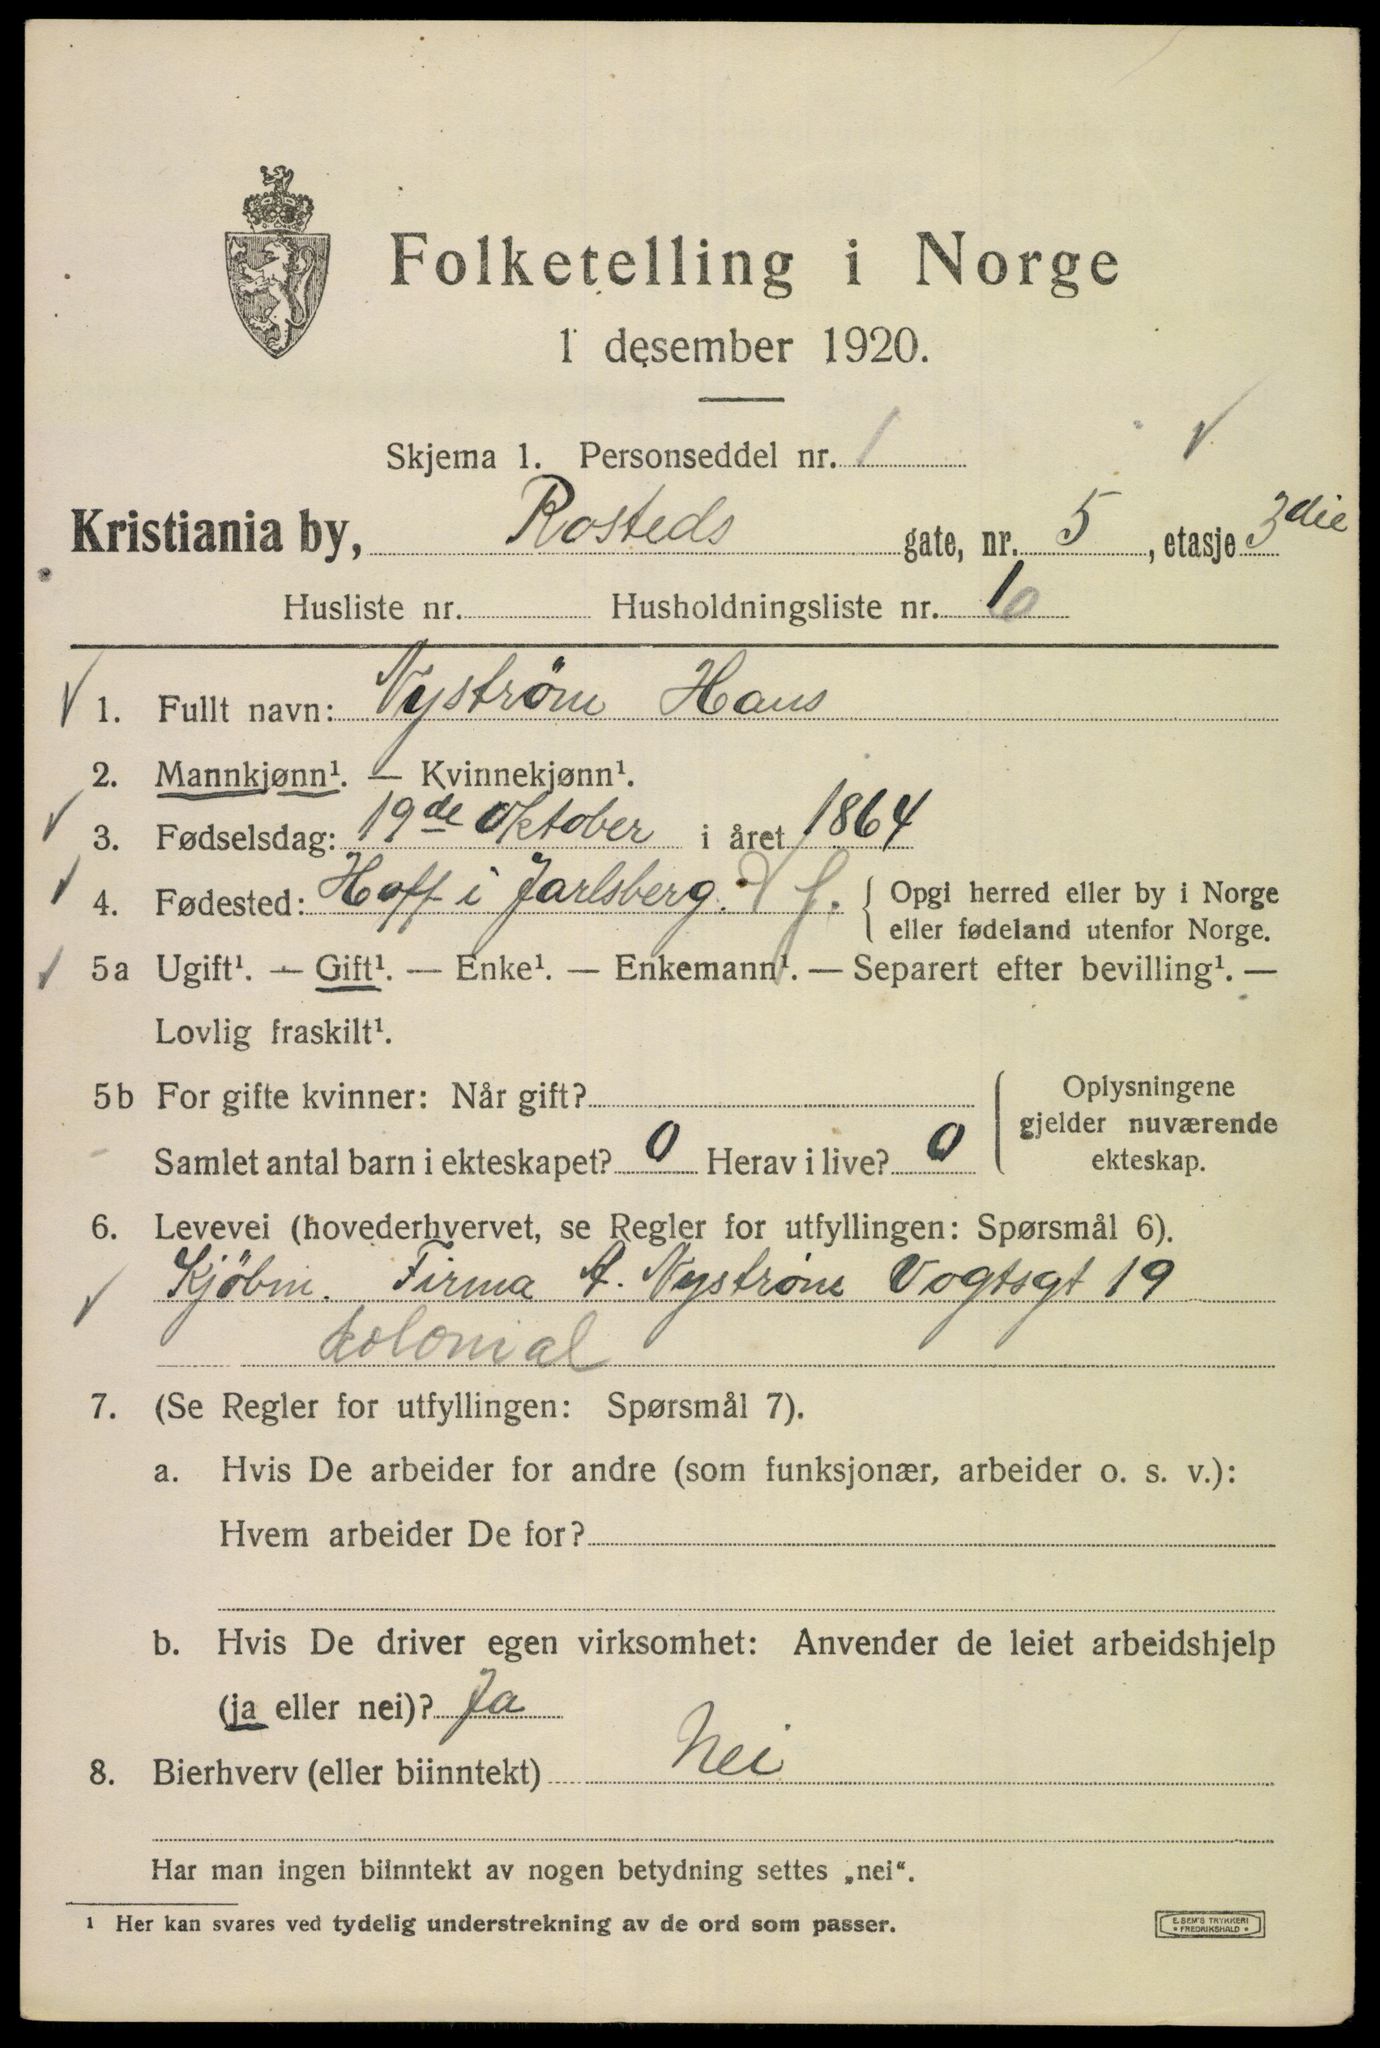 Folketelling i Norge
1 desember 1920.
Skjema 1. Personseddel nr. 1
Kristiania by, Rosteds gate, nr. 5, etasje 3die
Husliste nr. Husholdningsliste nr. 10
1. Fullt navn: Nyström Hans
2. Mannkjønn¹. — Kvinnekjønn¹.
3. Fødselsdag: 19de Oktober i året 1864
4. Fødested: Hoff i Jarlsberg. { Opgi herred eller by i Norge
eller fødeland utenfor Norge.
5a Ugift¹. — Gift¹. — Enke¹. — Enkemann¹. — Separert efter bevilling¹. —
Lovlig fraskilt¹.
5b For gifte kvinner: Når gift?
Samlet antal barn i ekteskapet? 0 Herav i live? 0
Oplysningene
gjelder nuværende
ekteskap.
6. Levevei (hovederhvervet, se Regler for utfyllingen: Spørsmål 6).
Kjöbm. Firma A. Nyström Vogtsgt 19
kolonial
7. (Se Regler for utfyllingen: Spørsmål 7).
a. Hvis De arbeider for andre (som funksjonær, arbeider o. s. v.):
Hvem arbeider De for?
b. Hvis De driver egen virksomhet: Anvender de leiet arbeidshjelp
(ja eller nei)? Ja
8. Bierhverv (eller biinntekt) Nei
Har man ingen biinntekt av nogen betydning settes „nei“.
¹ Her kan svares ved tydelig understrekning av de ord som passer.
E. SEM'S TRYKKERI
* FREDRIKSHALD *